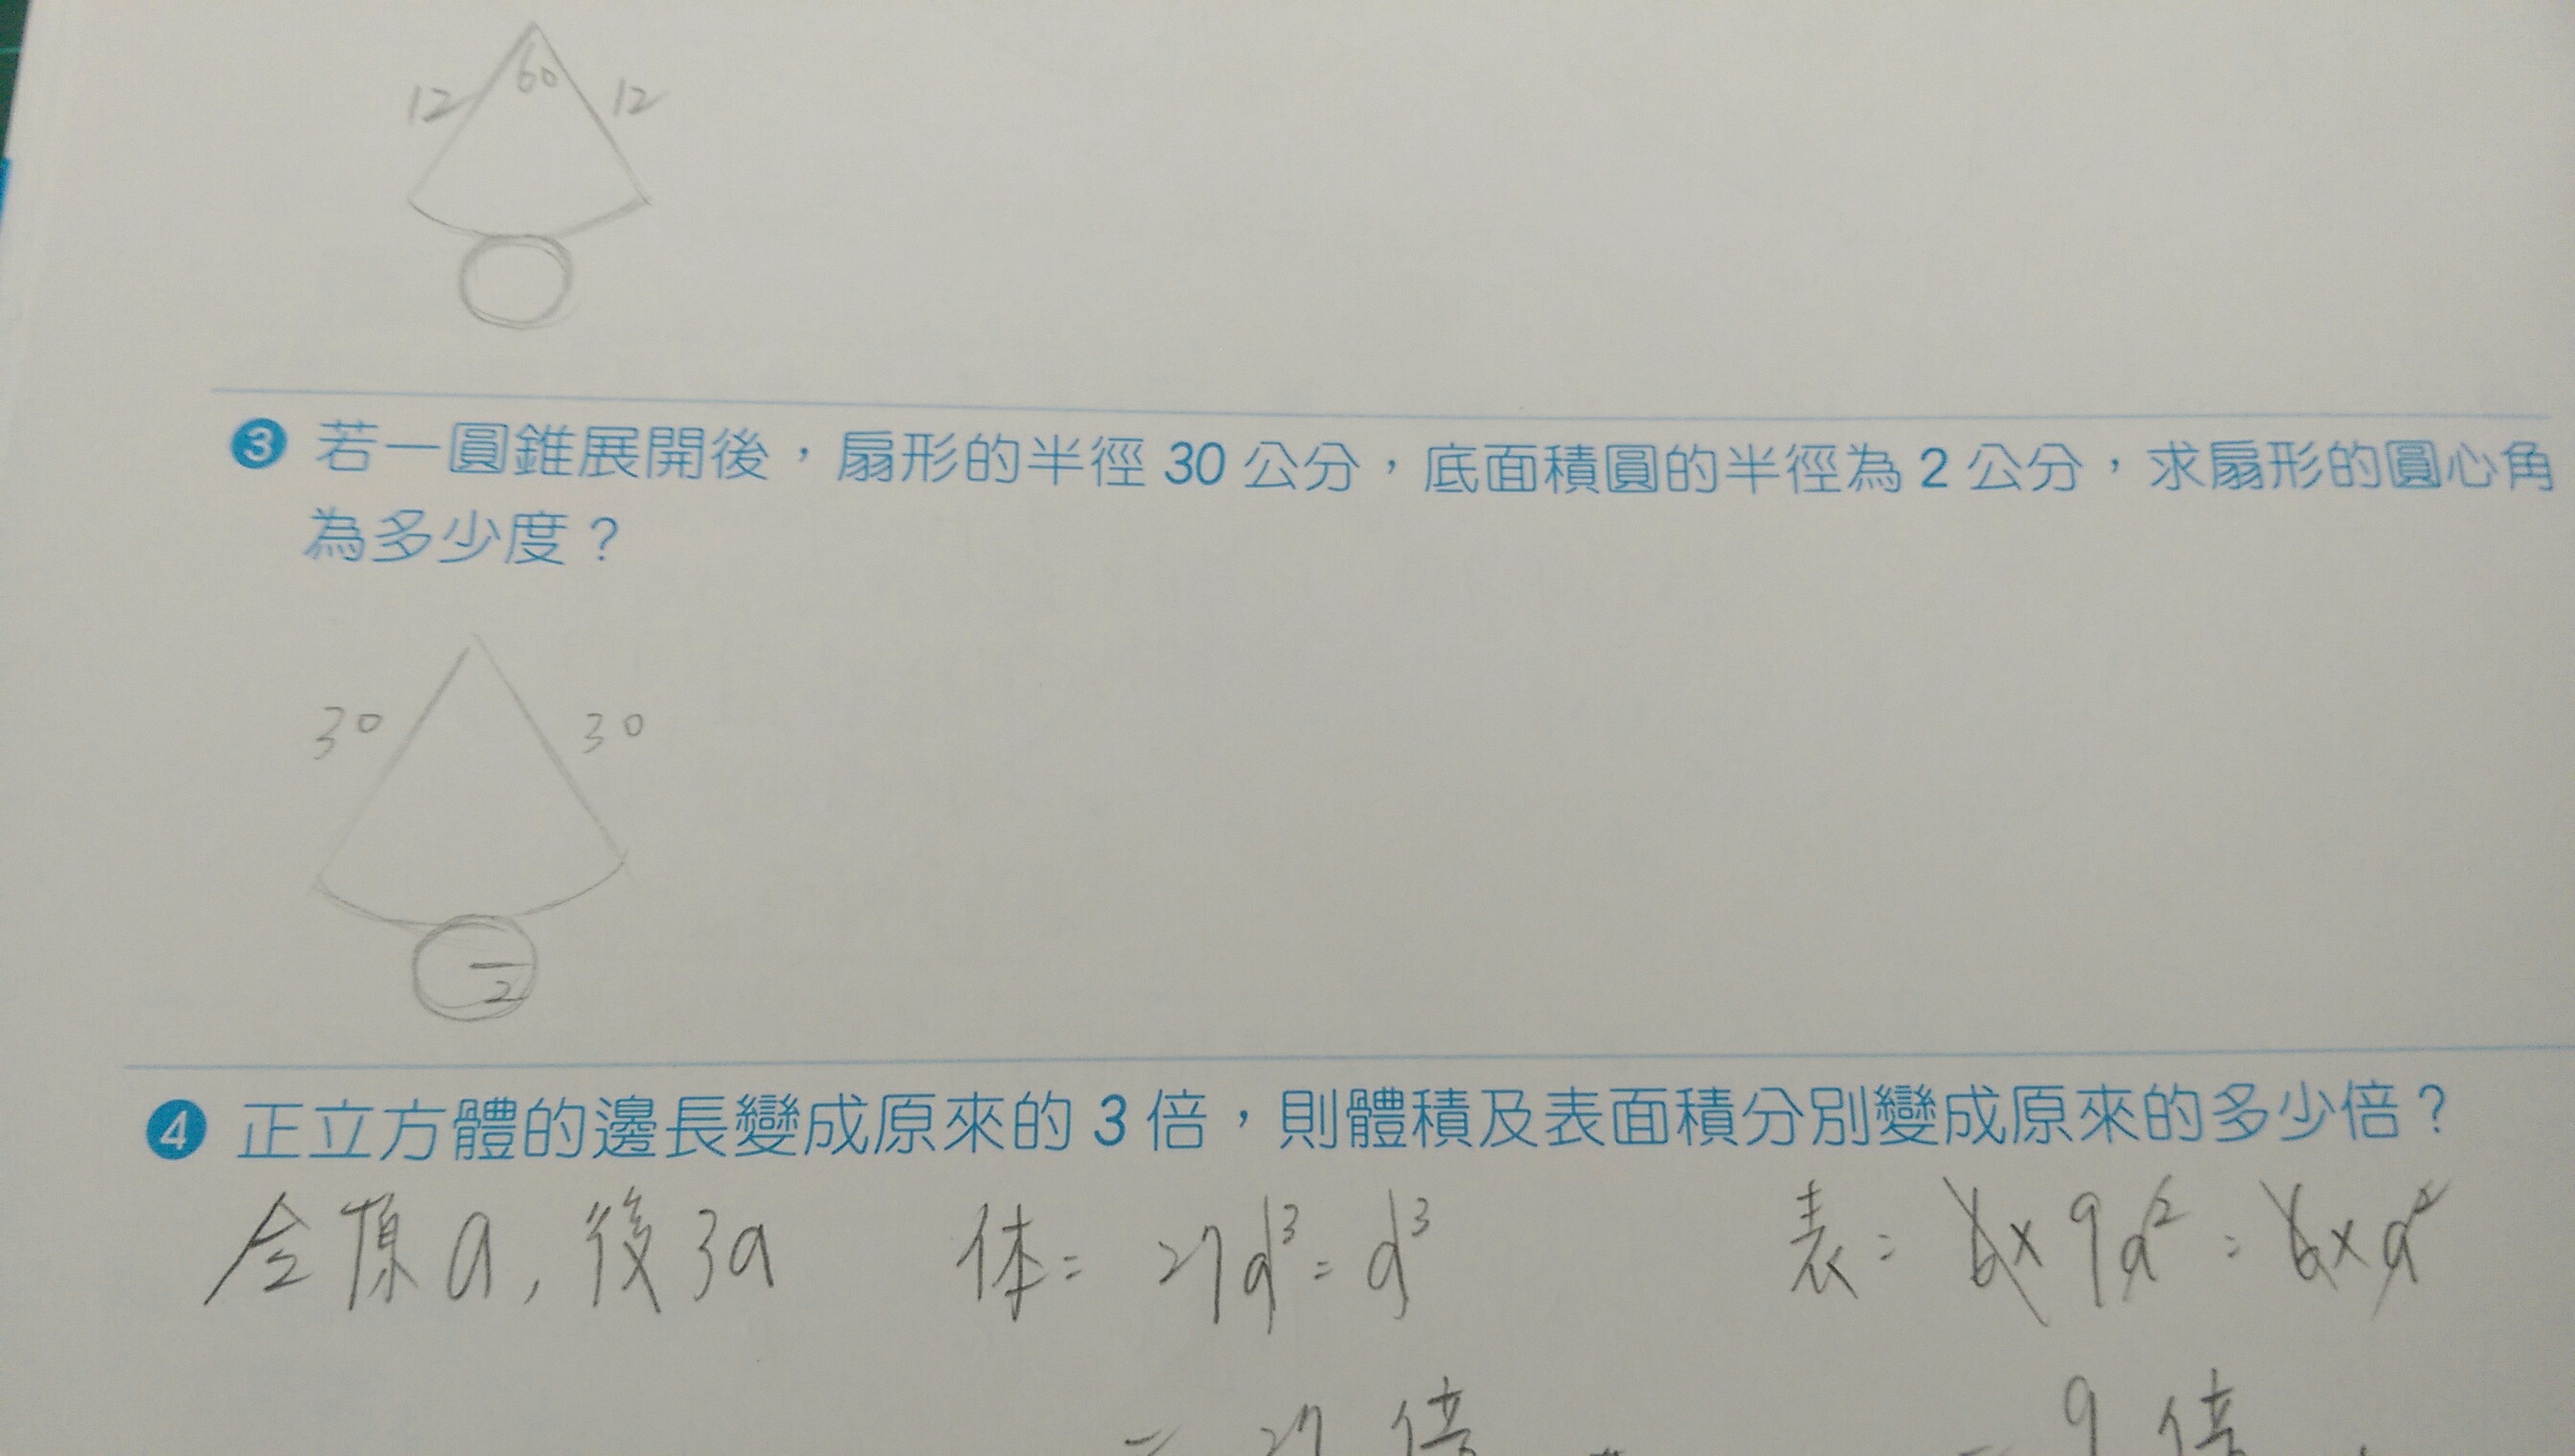 60
12 12
3 若一圓錐展開後，扇形的半徑 30 公分，底面積圓的半徑為 2 公分，求扇形的圓心角
為多少度？
30 30
2
4 正立方體的邊長變成原來的 3 倍，則體積及表面積分別變成原來的多少倍？
令原a, 後3a 体= 27a³:a³ 表: 6×9a²:6×a²
= 27 倍 = 9 倍